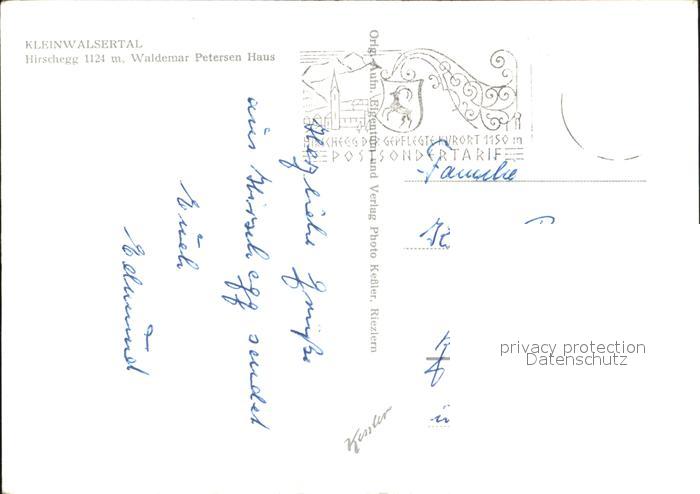 KLEINWALSERTAL
Hirschegg 1124 m, Waldemar Petersen Haus
Herzliche Grüße
aus Hirschegg sendet
Euch
Edmund
Orig.-Aufn. Eigentum und Verlag Photo Keßler, Riezlern
HIRSCHEGG DER GEPFLEGTE KURORT 1150 m
POSTSONDERTARIF
Familie
privacy protection
Datenschutz
Kessler